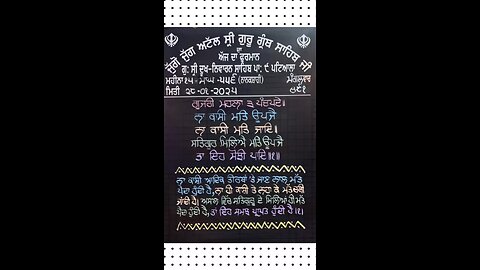 ਜੁੱਗੋ ਜੁੱਗ ਅਟੱਲ ਸ੍ਰੀ ਗੁਰੂ ਗ੍ਰੰਥ ਸਾਹਿਬ ਜੀ
ਦਾ
ਅੱਜ ਦਾ ਫੁਰਮਾਨ
ਗੁ: ਸ੍ਰੀ ਦੁਖ-ਨਿਵਾਰਨ ਸਾਹਿਬ ਪਾ: ੯ ਪਟਿਆਲਾ
ਮਹੀਨਾ ੧੫ - ਮਾਘ - ੫੫੬ (ਨਾਨਕਸ਼ਾਹੀ) ਮੰਗਲਵਾਰ
ਮਿਤੀ ੨੮-੦੧-੨੦੨੫
ਗੂਜਰੀ ਮਹਲਾ ੩ ਪੰਚਪਦੇ॥
ਨਾ ਕਾਸੀ ਮਤਿ ਊਪਜੈ
ਨਾ ਕਾਸੀ ਮਤਿ ਜਾਇ॥
ਸਤਿਗੁਰ ਮਿਲਿਐ ਮਤਿ ਊਪਜੈ
ਤਾ ਇਹ ਸੋਝੀ ਪਾਇ॥੧॥
ਨਾ ਕਾਸ਼ੀ ਆਦਿਕ ਤੀਰਥਾਂ ਤੇ ਜਾਣ ਨਾਲ ਮੱਤ
ਪੈਦਾ ਹੁੰਦੀ ਹੈ, ਨਾ ਹੀ ਕਾਸ਼ੀ ਤੇ ਮਤ
ਜਾਂਦੀ ਹੈ। ਅਸਲ ਵਿੱਚ ਸਤਿਗੁਰੂ ਦੇ ਮਿਲਿਆਂ ਹੀ ਮਤਿ
ਪੈਦਾ ਹੁੰਦੀ ਹੈ, ਤਾਂ ਇਹ ਸਮਝ ਪ੍ਰਾਪਤ ਹੁੰਦੀ ਹੈ।੧।